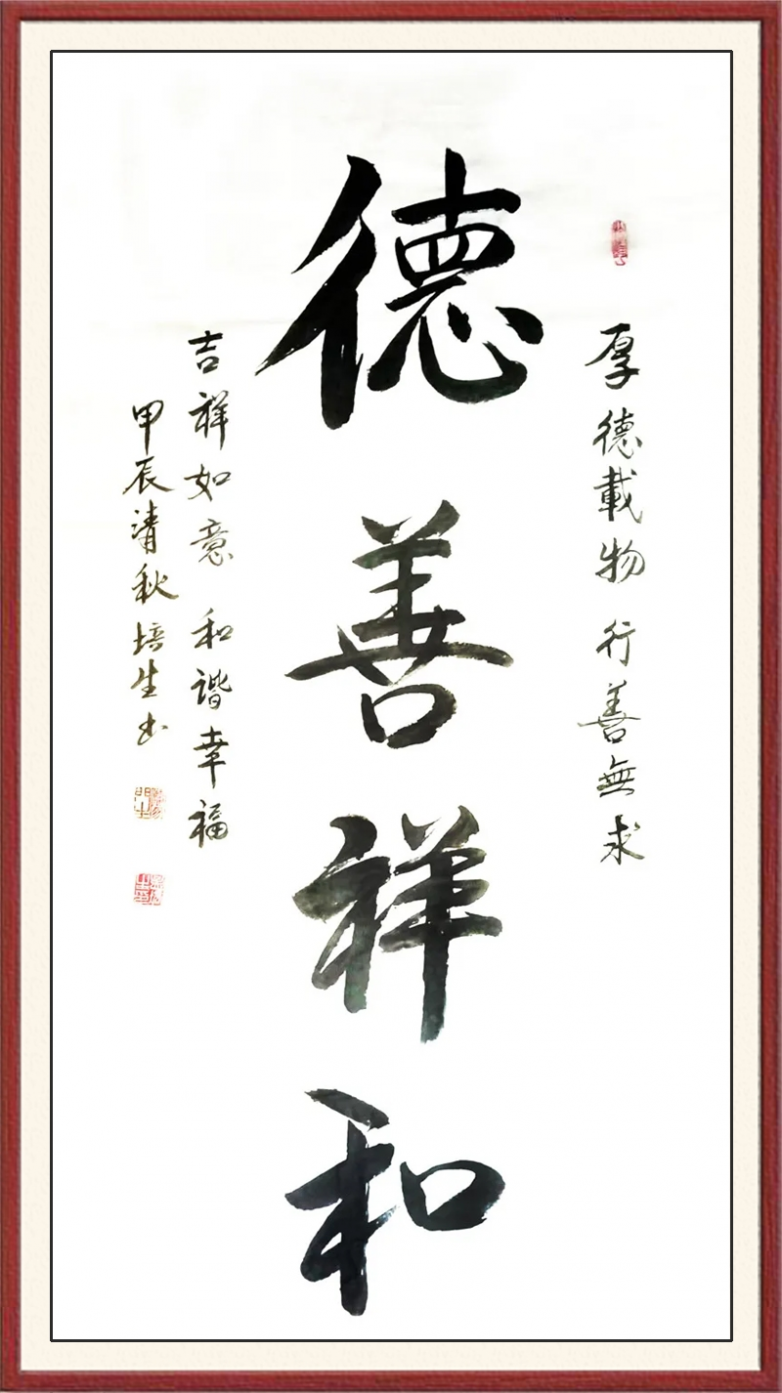 厚德載物 行善無求
德善祥和
吉祥如意 和谐幸福
甲辰清秋培生书